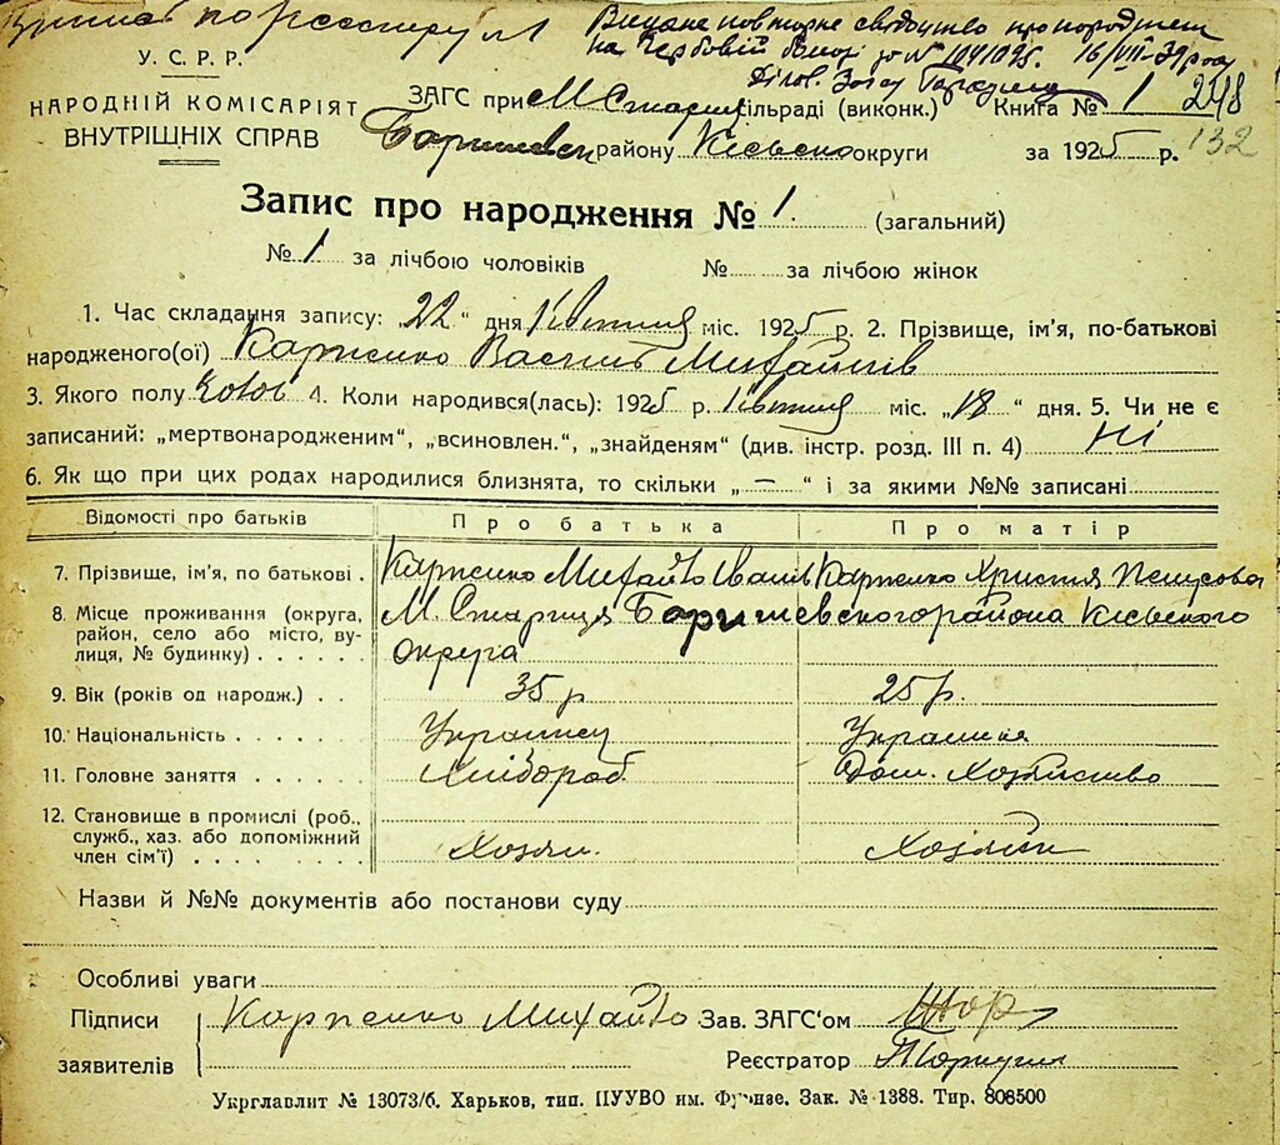 Видане повторне свідоцтво про народження
на гербовій
У. С. Р. Р.
НАРОДНІЙ КОМІСАРІЯТ
ВНУТРІШНІХ СПРАВ
ЗАГС при М Стариц. сільраді (виконк.) Книга № 1 248
району Київско округи за 1925 р. 132
Запис про народження № 1. (загальний)
№ 1 за лічбою чоловіків № за лічбою жінок
1. Час складання запису: „22“ дня Квітня міс. 1925 р. 2. Прізвище, ім'я, по-батькові
народженого(ої) Карпенко Василь Михайлів
3. Якого полу чолов 4. Коли народився(лась): 1925 р. Квітня міс. „18“ дня. 5. Чи не є
записаний: „мертвонародженим“, „всиновлен.“, „знайденям“ (див. інстр. розд. III п. 4) Ні
6. Як що при цих родах народилися близнята, то скільки „—“ і за якими №№ записані
Відомості про батьків Про батька Про матір
7. Прізвище, ім'я, по батькові . Карпенко Михайло Іванів Карпенко Христя
8. Місце проживання (округа, М. Стариця Боришевского района Киевского
район, село або місто, ву-
лиця, № будинку) . . . . . . округа
9. Вік (років од народж.) . . 35 р 25 р.
10. Національність . . . . . . Украинец Украинка
11. Головне заняття . . . . . . Хлібороб Дом. Хозяйство
12. Становище в промислі (роб.,
служб., хаз. або допоміжний
член сім'ї) . . . . . . . . Хозяин.
Назви й №№ документів або постанови суду
Особливі уваги
Підписи Карпенко Михайло Зав. ЗАГС'ом
заявителів Реєстратор
Укрглавлит № 13073/б. Харьков, тип. ПУУВО им. Фрунзе. Зак. № 1388. Тир. 808500